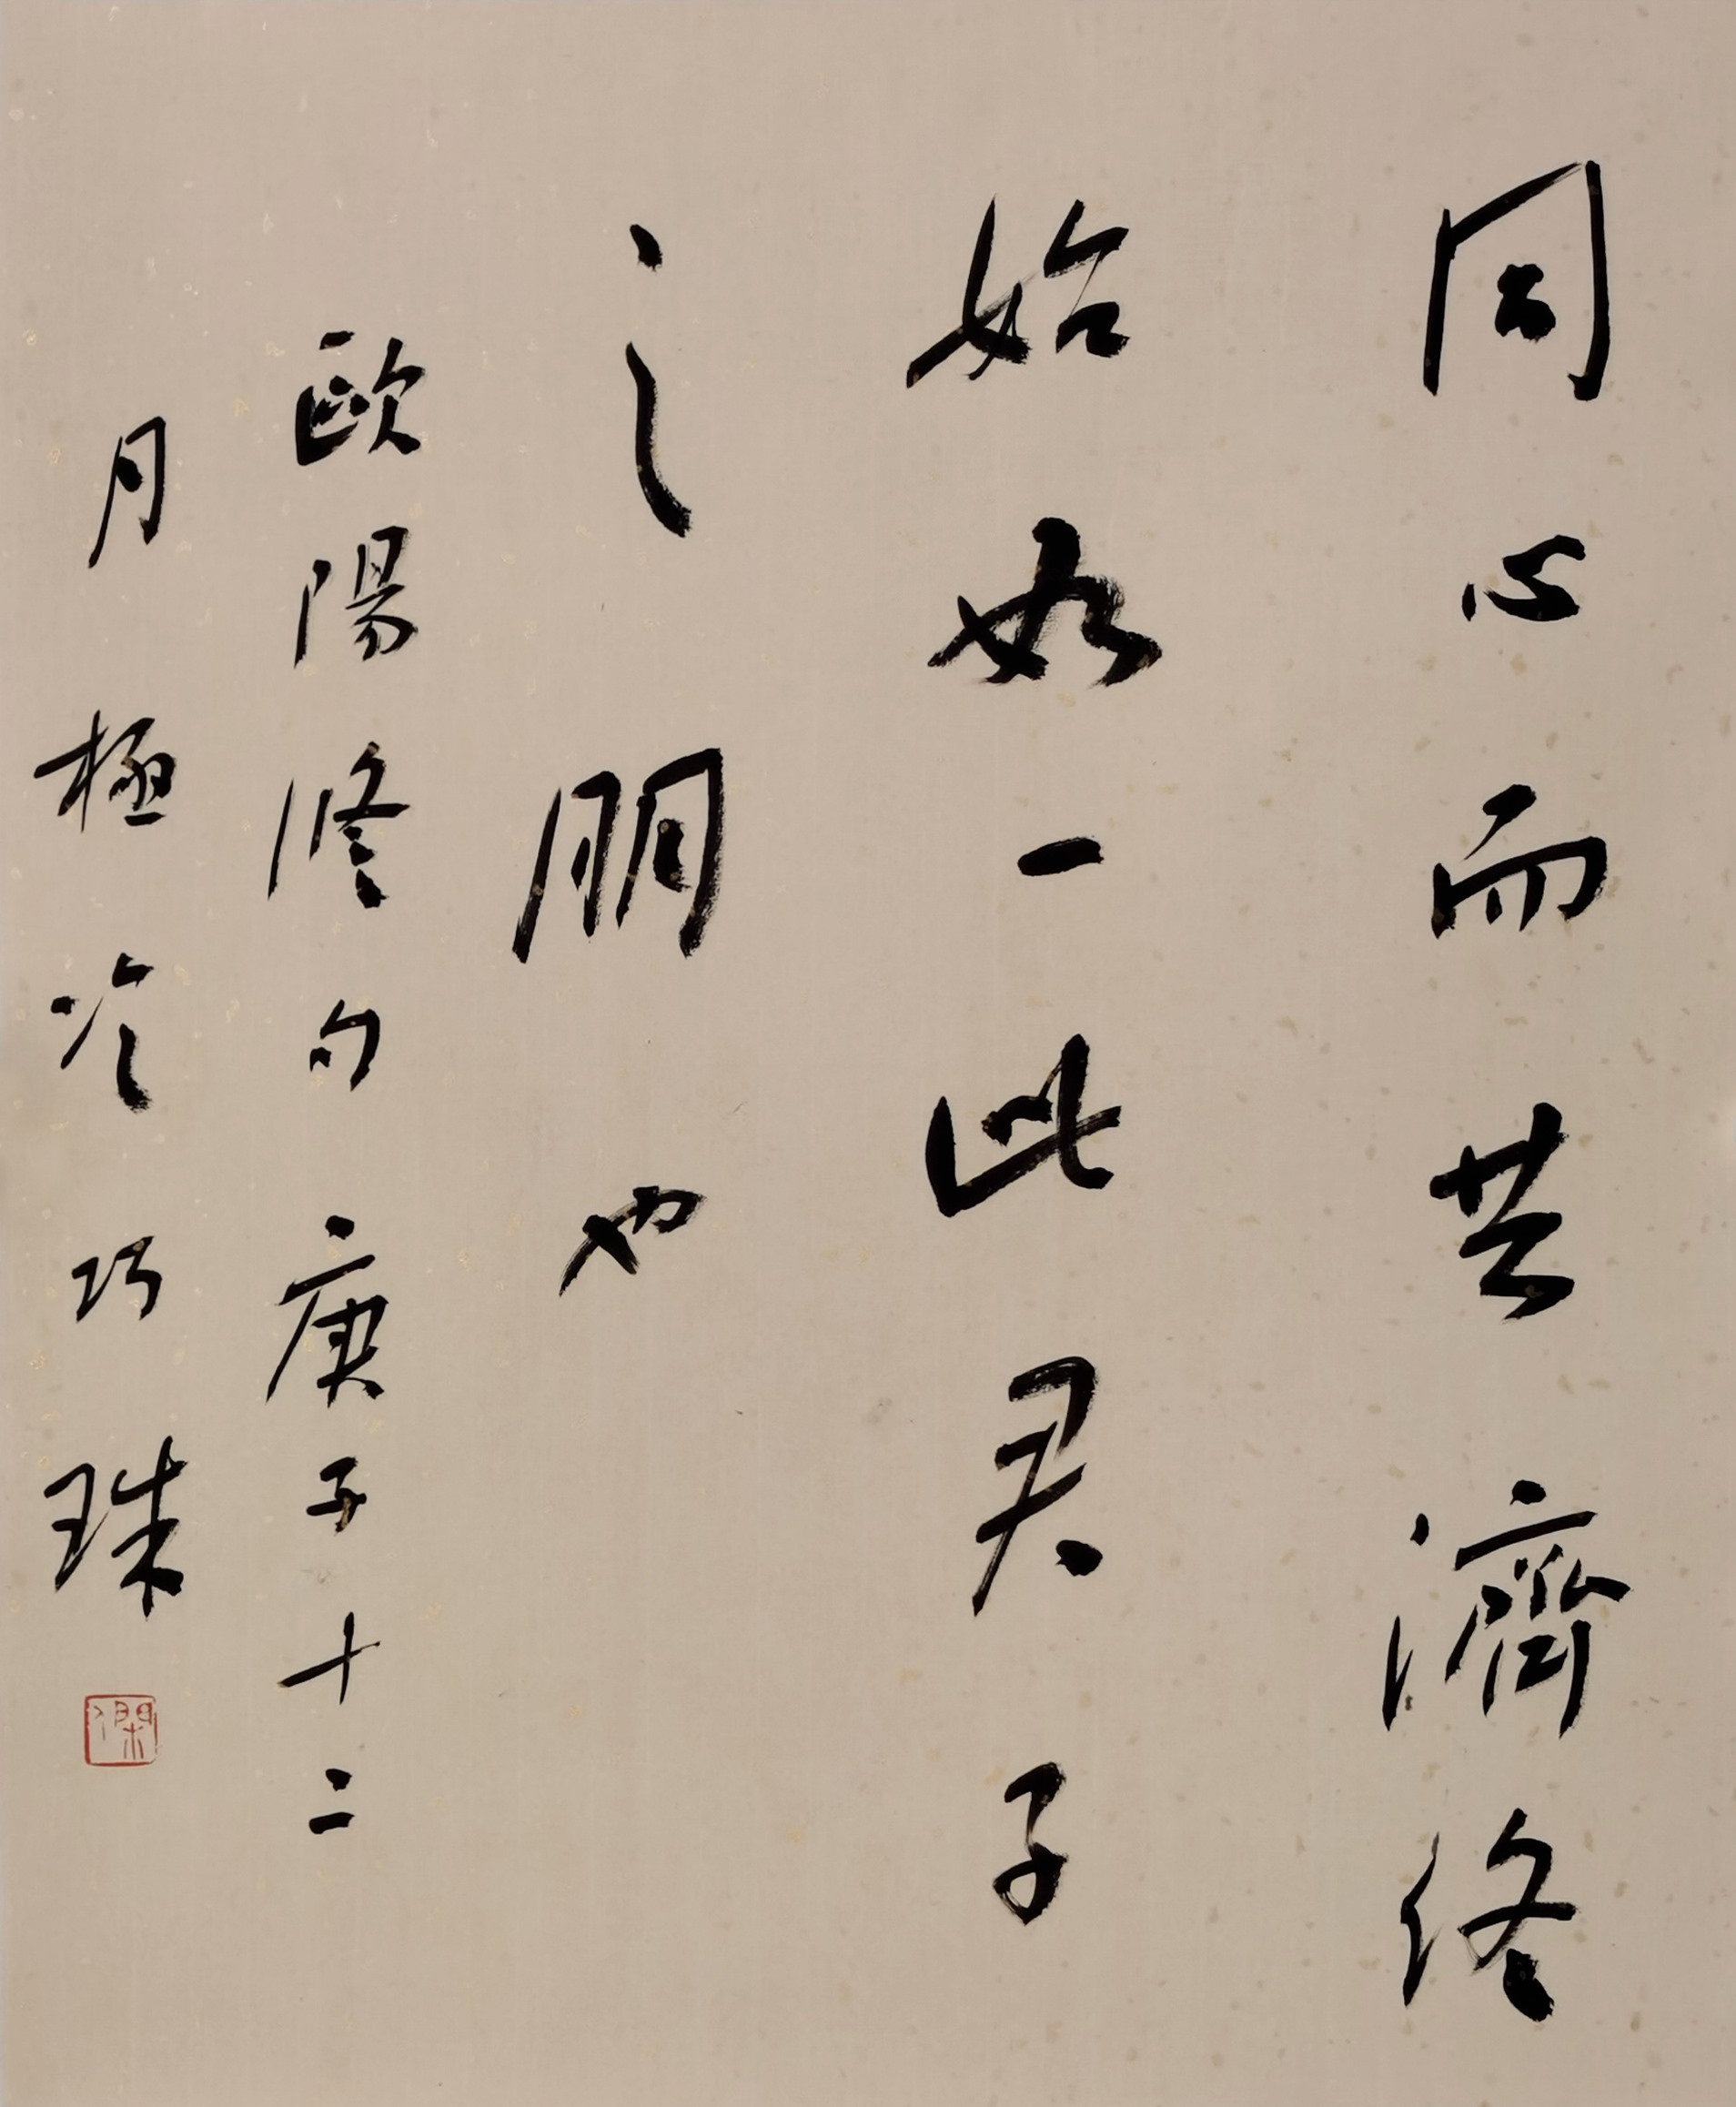 同心而共濟終
始如一此君子
之朋也
歐陽脩句庚子十二
月極冷巧珠